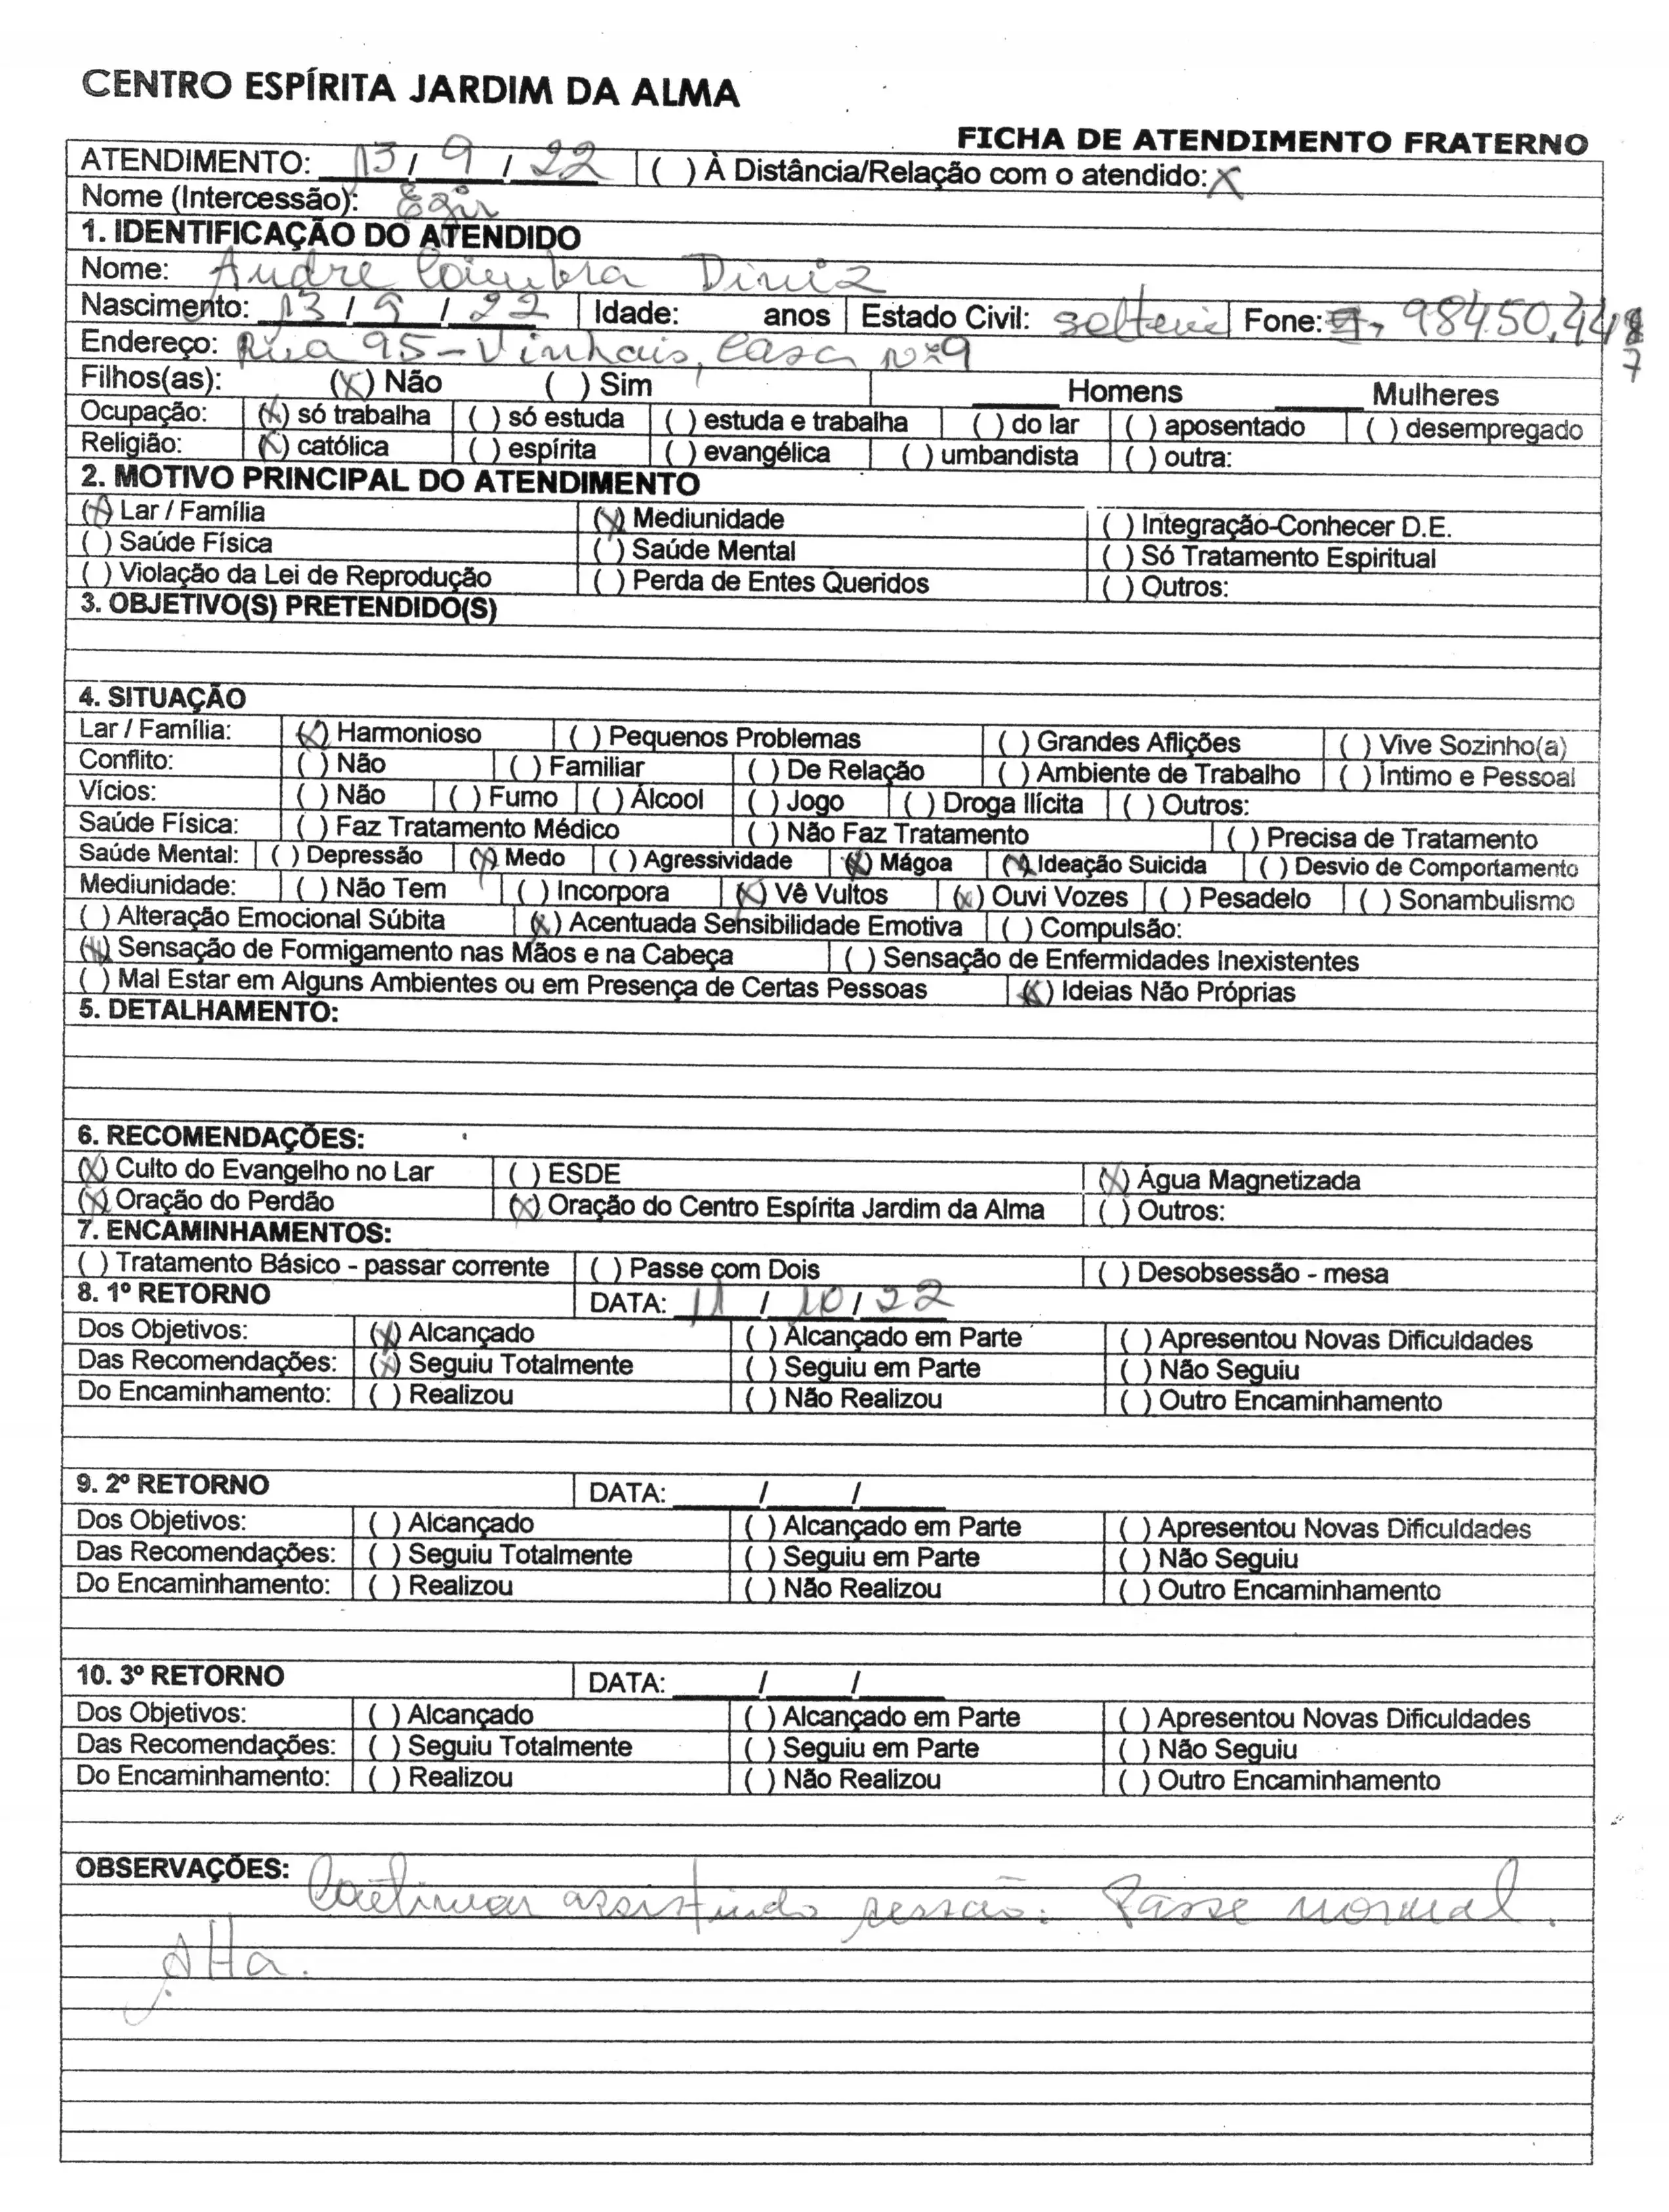 CENTRO ESPÍRITA JARDIM DA ALMA
FICHA DE ATENDIMENTO FRATERNO
ATENDIMENTO: 13 / 9 / 22 ( ) À Distância/Relação com o atendido: X
Nome (Intercessão):
1. IDENTIFICAÇÃO DO ATENDIDO
Nome: Andre Coimbra Diniz
Nascimento: 13 / 9 / 22 Idade: anos Estado Civil: solteiro Fone: 98450.44
7
Endereço: Rua 95 - Vinhais, casa nº 9
Filhos(as): (X) Não ( ) Sim ____ Homens ____ Mulheres
Ocupação: (X) só trabalha ( ) só estuda ( ) estuda e trabalha ( ) do lar ( ) aposentado ( ) desempregado
Religião: (X) católica ( ) espírita ( ) evangélica ( ) umbandista ( ) outra:
2. MOTIVO PRINCIPAL DO ATENDIMENTO
(X) Lar / Família (X) Mediunidade ( ) Integração-Conhecer D.E.
( ) Saúde Física ( ) Saúde Mental ( ) Só Tratamento Espiritual
( ) Violação da Lei de Reprodução ( ) Perda de Entes Queridos ( ) Outros:
3. OBJETIVO(S) PRETENDIDO(S)
4. SITUAÇÃO
Lar / Família: (X) Harmonioso ( ) Pequenos Problemas ( ) Grandes Aflições ( ) Vive Sozinho(a)
Conflito: ( ) Não ( ) Familiar ( ) De Relação ( ) Ambiente de Trabalho ( ) Íntimo e Pessoal
Vícios: ( ) Não ( ) Fumo ( ) Álcool ( ) Jogo ( ) Droga Ilícita ( ) Outros:
Saúde Física: ( ) Faz Tratamento Médico ( ) Não Faz Tratamento ( ) Precisa de Tratamento
Saúde Mental: ( ) Depressão (X) Medo ( ) Agressividade (X) Mágoa (X) Ideação Suicida ( ) Desvio de Comportamento
Mediunidade: ( ) Não Tem ( ) Incorpora (X) Vê Vultos (X) Ouvi Vozes ( ) Pesadelo ( ) Sonambulismo
( ) Alteração Emocional Súbita (X) Acentuada Sensibilidade Emotiva ( ) Compulsão:
(X) Sensação de Formigamento nas Mãos e na Cabeça ( ) Sensação de Enfermidades Inexistentes
( ) Mal Estar em Alguns Ambientes ou em Presença de Certas Pessoas (X) Ideias Não Próprias
5. DETALHAMENTO:
6. RECOMENDAÇÕES:
(X) Culto do Evangelho no Lar ( ) ESDE (X) Água Magnetizada
(X) Oração do Perdão (X) Oração do Centro Espírita Jardim da Alma ( ) Outros:
7. ENCAMINHAMENTOS:
( ) Tratamento Básico - passar corrente ( ) Passe com Dois ( ) Desobsessão - mesa
8. 1º RETORNO DATA: 11 / 10 / 22
Dos Objetivos: (X) Alcançado ( ) Alcançado em Parte ( ) Apresentou Novas Dificuldades
Das Recomendações: (X) Seguiu Totalmente ( ) Seguiu em Parte ( ) Não Seguiu
Do Encaminhamento: ( ) Realizou ( ) Não Realizou ( ) Outro Encaminhamento
9. 2º RETORNO DATA: ____/____/____
Dos Objetivos: ( ) Alcançado ( ) Alcançado em Parte ( ) Apresentou Novas Dificuldades
Das Recomendações: ( ) Seguiu Totalmente ( ) Seguiu em Parte ( ) Não Seguiu
Do Encaminhamento: ( ) Realizou ( ) Não Realizou ( ) Outro Encaminhamento
10. 3º RETORNO DATA: ____/____/____
Dos Objetivos: ( ) Alcançado ( ) Alcançado em Parte ( ) Apresentou Novas Dificuldades
Das Recomendações: ( ) Seguiu Totalmente ( ) Seguiu em Parte ( ) Não Seguiu
Do Encaminhamento: ( ) Realizou ( ) Não Realizou ( ) Outro Encaminhamento
OBSERVAÇÕES: Continuar assistindo sessão. Passe normal.
Alta.